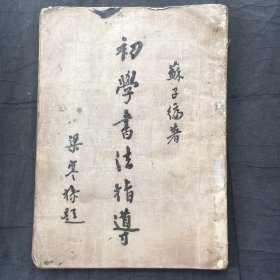 蘇子編著
初學書法指導
梁寒操題